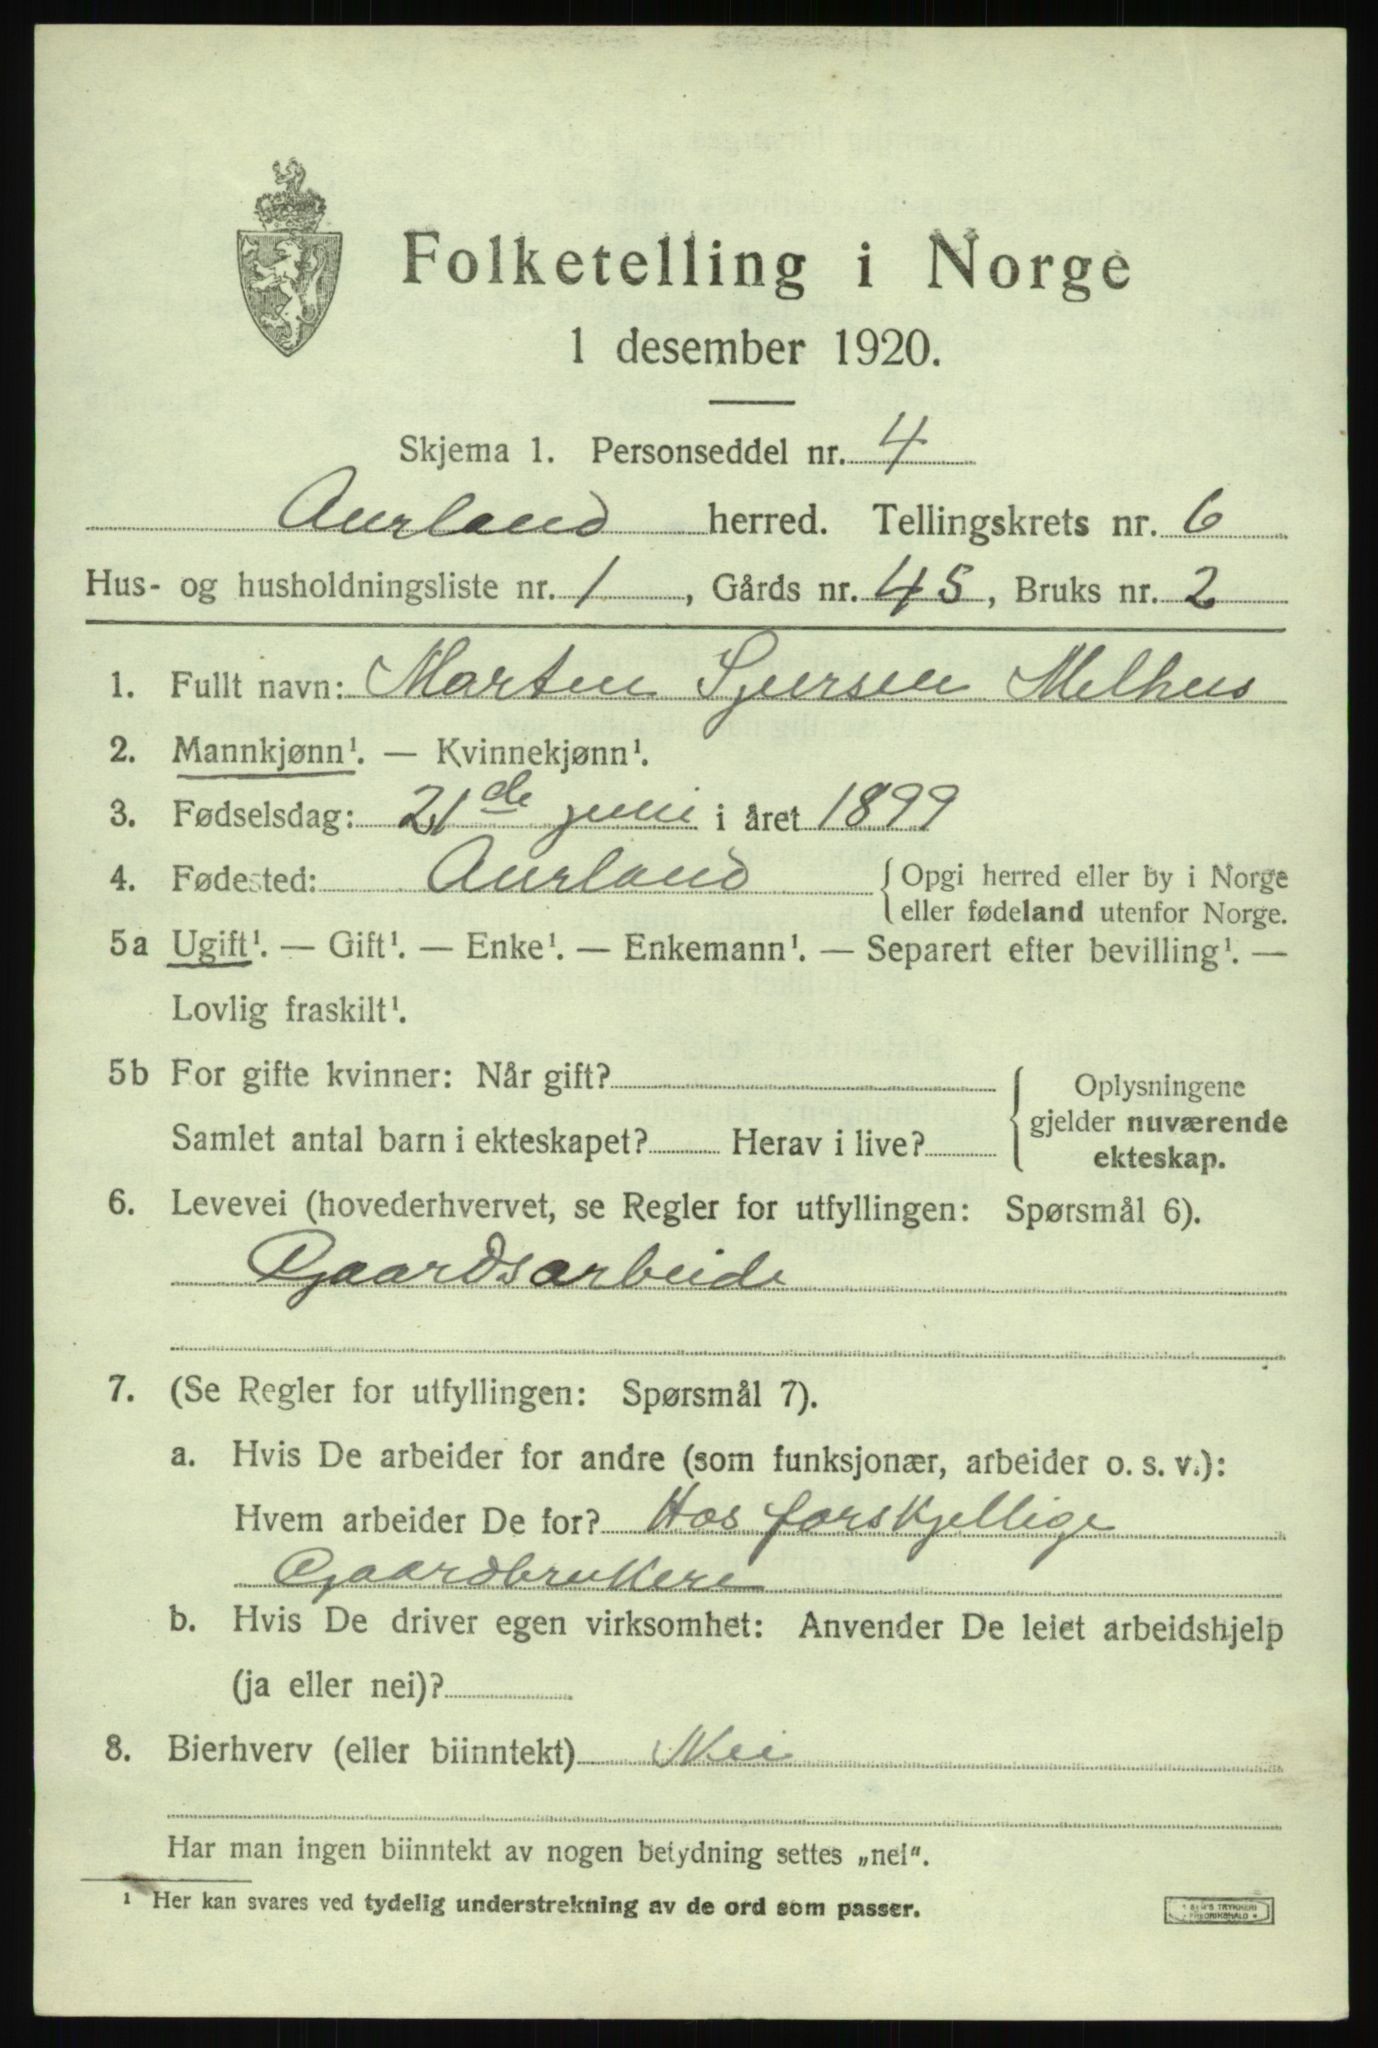 Folketelling i Norge
1 desember 1920.
Skjema 1. Personseddel nr. 4
Aurland herred. Tellingskrets nr. 6
Hus- og husholdningsliste nr. 1, Gårds nr. 45, Bruks nr. 2
1. Fullt navn: Marten Sjursen Melhus
2. Mannkjønn¹. — Kvinnekjønn¹.
3. Fødselsdag: 21de juni i året 1899
4. Fødested: Aurland { Opgi herred eller by i Norge
eller fødeland utenfor Norge.
5a Ugift¹. — Gift¹. — Enke¹. — Enkemann¹. — Separert efter bevilling¹. —
Lovlig fraskilt¹.
5b For gifte kvinner: Når gift?
Samlet antal barn i ekteskapet? Herav i live?
Oplysningene
gjelder nuværende
ekteskap.
6. Levevei (hovederhvervet, se Regler for utfyllingen: Spørsmål 6).
Gaardsarbeide
7. (Se Regler for utfyllingen: Spørsmål 7).
a. Hvis De arbeider for andre (som funksjonær, arbeider o. s. v.):
Hvem arbeider De for? Hos forskjellige
Gaardbrukere
b. Hvis De driver egen virksomhet: Anvender De leiet arbeidshjelp
(ja eller nei)?
8. Bierhverv (eller biinntekt) Nei
Har man ingen biinntekt av nogen betydning settes „nei".
¹ Her kan svares ved tydelig understrekning av de ord som passer.
TRYKKERI
FREDRIKSHALD